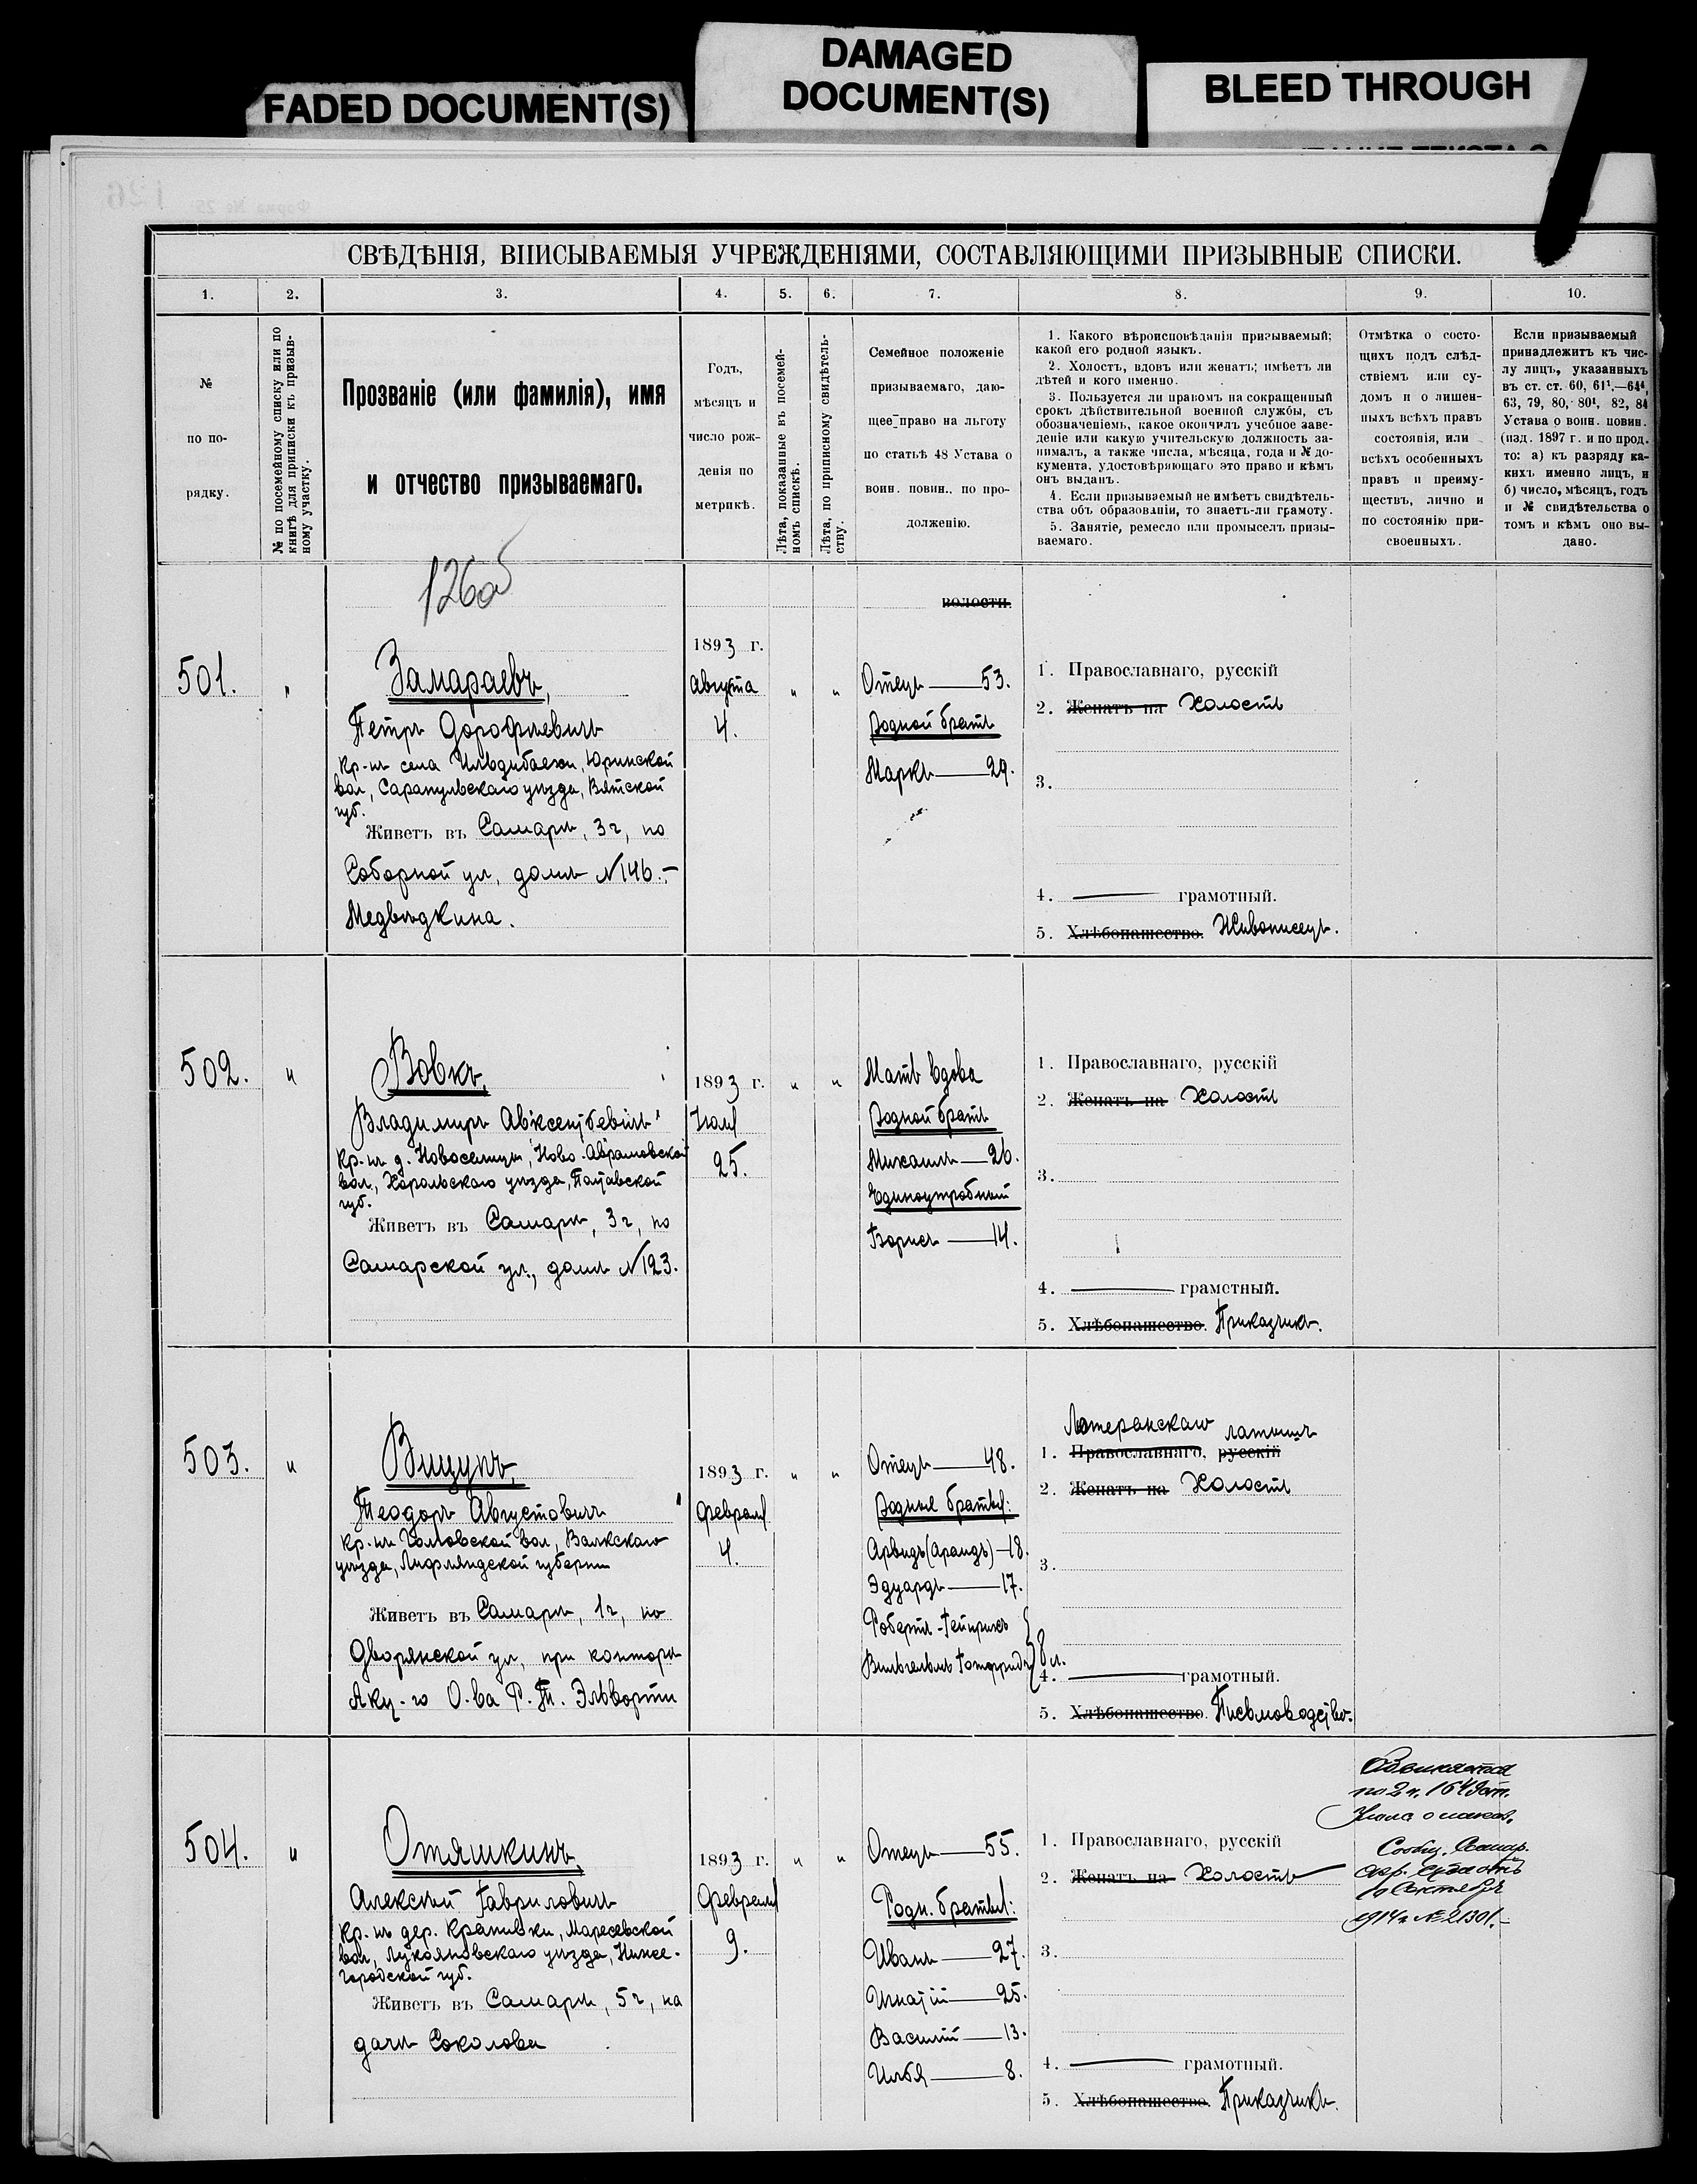 FADED DOCUMENT(S)
DAMAGED
DOCUMENT(S)
BLEED THROUGH
СВѢДѢНІЯ, ВПИСЫВАЕМЫЯ УЧРЕЖДЕНІЯМИ, СОСТАВЛЯЮЩИМИ ПРИЗЫВНЫЕ СПИСКИ.
1. 2. 3. 4. 5. 6. 7. 8. 9. 10.
№
по по-
рядку.
№ по посемейному списку или по
книгѣ для приписки къ призыв-
ному участку.
Прозваніе (или фамилія), имя
и отчество призываемаго.
Годъ,
мѣсяцъ и
число рож-
денія по
метрикѣ.
Лѣта, показанные въ посемей-
номъ спискѣ.
Лѣта, по приписному свидѣтель-
ству.
Семейное положеніе
призываемаго, даю-
щее право на льготу
по статьѣ 48 Устава о
воин. повин.. по про-
долженію.
1. Какого вѣроисповѣданія призываемый;
какой его родной языкъ.
2. Холостъ, вдовъ или женатъ; имѣетъ ли
дѣтей и кого именно.
3. Пользуется ли правомъ на сокращенный
срокъ дѣйствительной военной службы, съ
обозначеніемъ, какое окончилъ учебное заве-
деніе или какую учительскую должность за-
нималъ, а также числа, мѣсяца, года и № до-
кумента, удостовѣряющаго это право и кѣмъ
онъ выданъ.
4. Если призываемый не имѣетъ свидѣтель-
ства объ образованіи, то знаетъ-ли грамоту.
5. Занятіе, ремесло или промыселъ призы-
ваемаго.
Отмѣтка о состо-
щихъ подъ слѣд-
ствіемъ или су-
домъ и о лишен-
ныхъ всѣхъ правъ
состоянія, или
всѣхъ особенныхъ
правъ и преиму-
ществъ, лично и
по состоянію при-
своенныхъ.
Если призываемый
принадлежитъ къ чис-
лу лицъ, указанныхъ
въ ст. ст. 60, 61¹,—64⁴,
63, 79, 80, 80¹, 82, 84
Устава о воин. повин.
(изд. 1897 г. и по прод.
то: а) къ разряду ка-
кихъ именно лицъ, и
б) число, мѣсяцъ, годъ
и № свидѣтельства о
томъ и кѣмъ оно вы-
дано.
126об
волости.
501.
Замараевъ,
Петръ Дорофѣевичъ
Кр-нъ села Ильдибаехи, Юринской
вол, Сарапульскаго уѣзда, Вятской
губ.
Живетъ въ Самарѣ, 3 г, по
Соборной ул, домъ № 146.-
Медвѣдкина.
1893 г.
Августа
4.
" "
Отецъ — 53.
Родной братъ
Маркъ — 29.
1. Православнаго, русскій
2. Женатъ на Холостъ
3.
4. — грамотный.
5. Хлѣбопашество. Живописецъ.
502. "
Вовкъ,
Владимиръ Авксентьевичъ
Кр-нъ д. Новоселицы, Ново-Аврамовской
вол., Хорольскаго уѣзда, Полтавской
губ.
Живетъ въ Самарѣ, 3 г, по
Самарской ул., домъ № 123.
1893 г.
Іюля
25.
" "
Мать вдова
Родной братъ
Михаилъ — 26.
Единоутробный
Борисъ — 14.
1. Православнаго, русскій
2. Женатъ на Холостъ
3.
4. — грамотный.
5. Хлѣбопашество. Приказчикъ.
503. "
Вицупъ,
Теодоръ Августовичъ
Кр-нъ Вол, Валкскаго
уѣзда, Лифляндской губерніи
Живетъ въ Самарѣ, 1 г, по
Дворянской ул, при конторѣ
Акц-го О-ва Р. Т. Эльворти
1893 г.
Февраля
4.
" "
Отецъ — 48.
Родные братья:
Арвидъ (Араидъ) — 18.
Эдуардъ — 17.
Робертъ-Гейнрихъ
Вильгельмъ Готфридъ } 8 л.
Лютеранскаго латышъ
1. Православнаго, русскій
2. Женатъ на Холостъ
3.
4. — грамотный.
5. Хлѣбопашество. Письмоводство.
504. "
Отяшкинъ,
Алексѣй Гавриловичъ
Кр-нъ дер. Крапивки, Маресевской
вол, Лукояновскаго уѣзда, Ниже-
городской губ.
Живетъ въ Самарѣ, 5 г, на
дачѣ Соколова
1893 г.
Февраля
9.
" "
Отецъ — 55.
Родн. братья:
Иванъ — 27.
Игнатій — 25.
Василій — 13.
Илья — 8.
1. Православнаго, русскій
2. Женатъ на Холостъ
3.
4. — грамотный.
5. Хлѣбопашество. Приказчикъ.
Обвиняется
по 2 ч. 1649 ст.
Улож. о наказ.
Сообщ. Самар.
окр. суда отъ
10 Октября
1914 г. № 21301.-